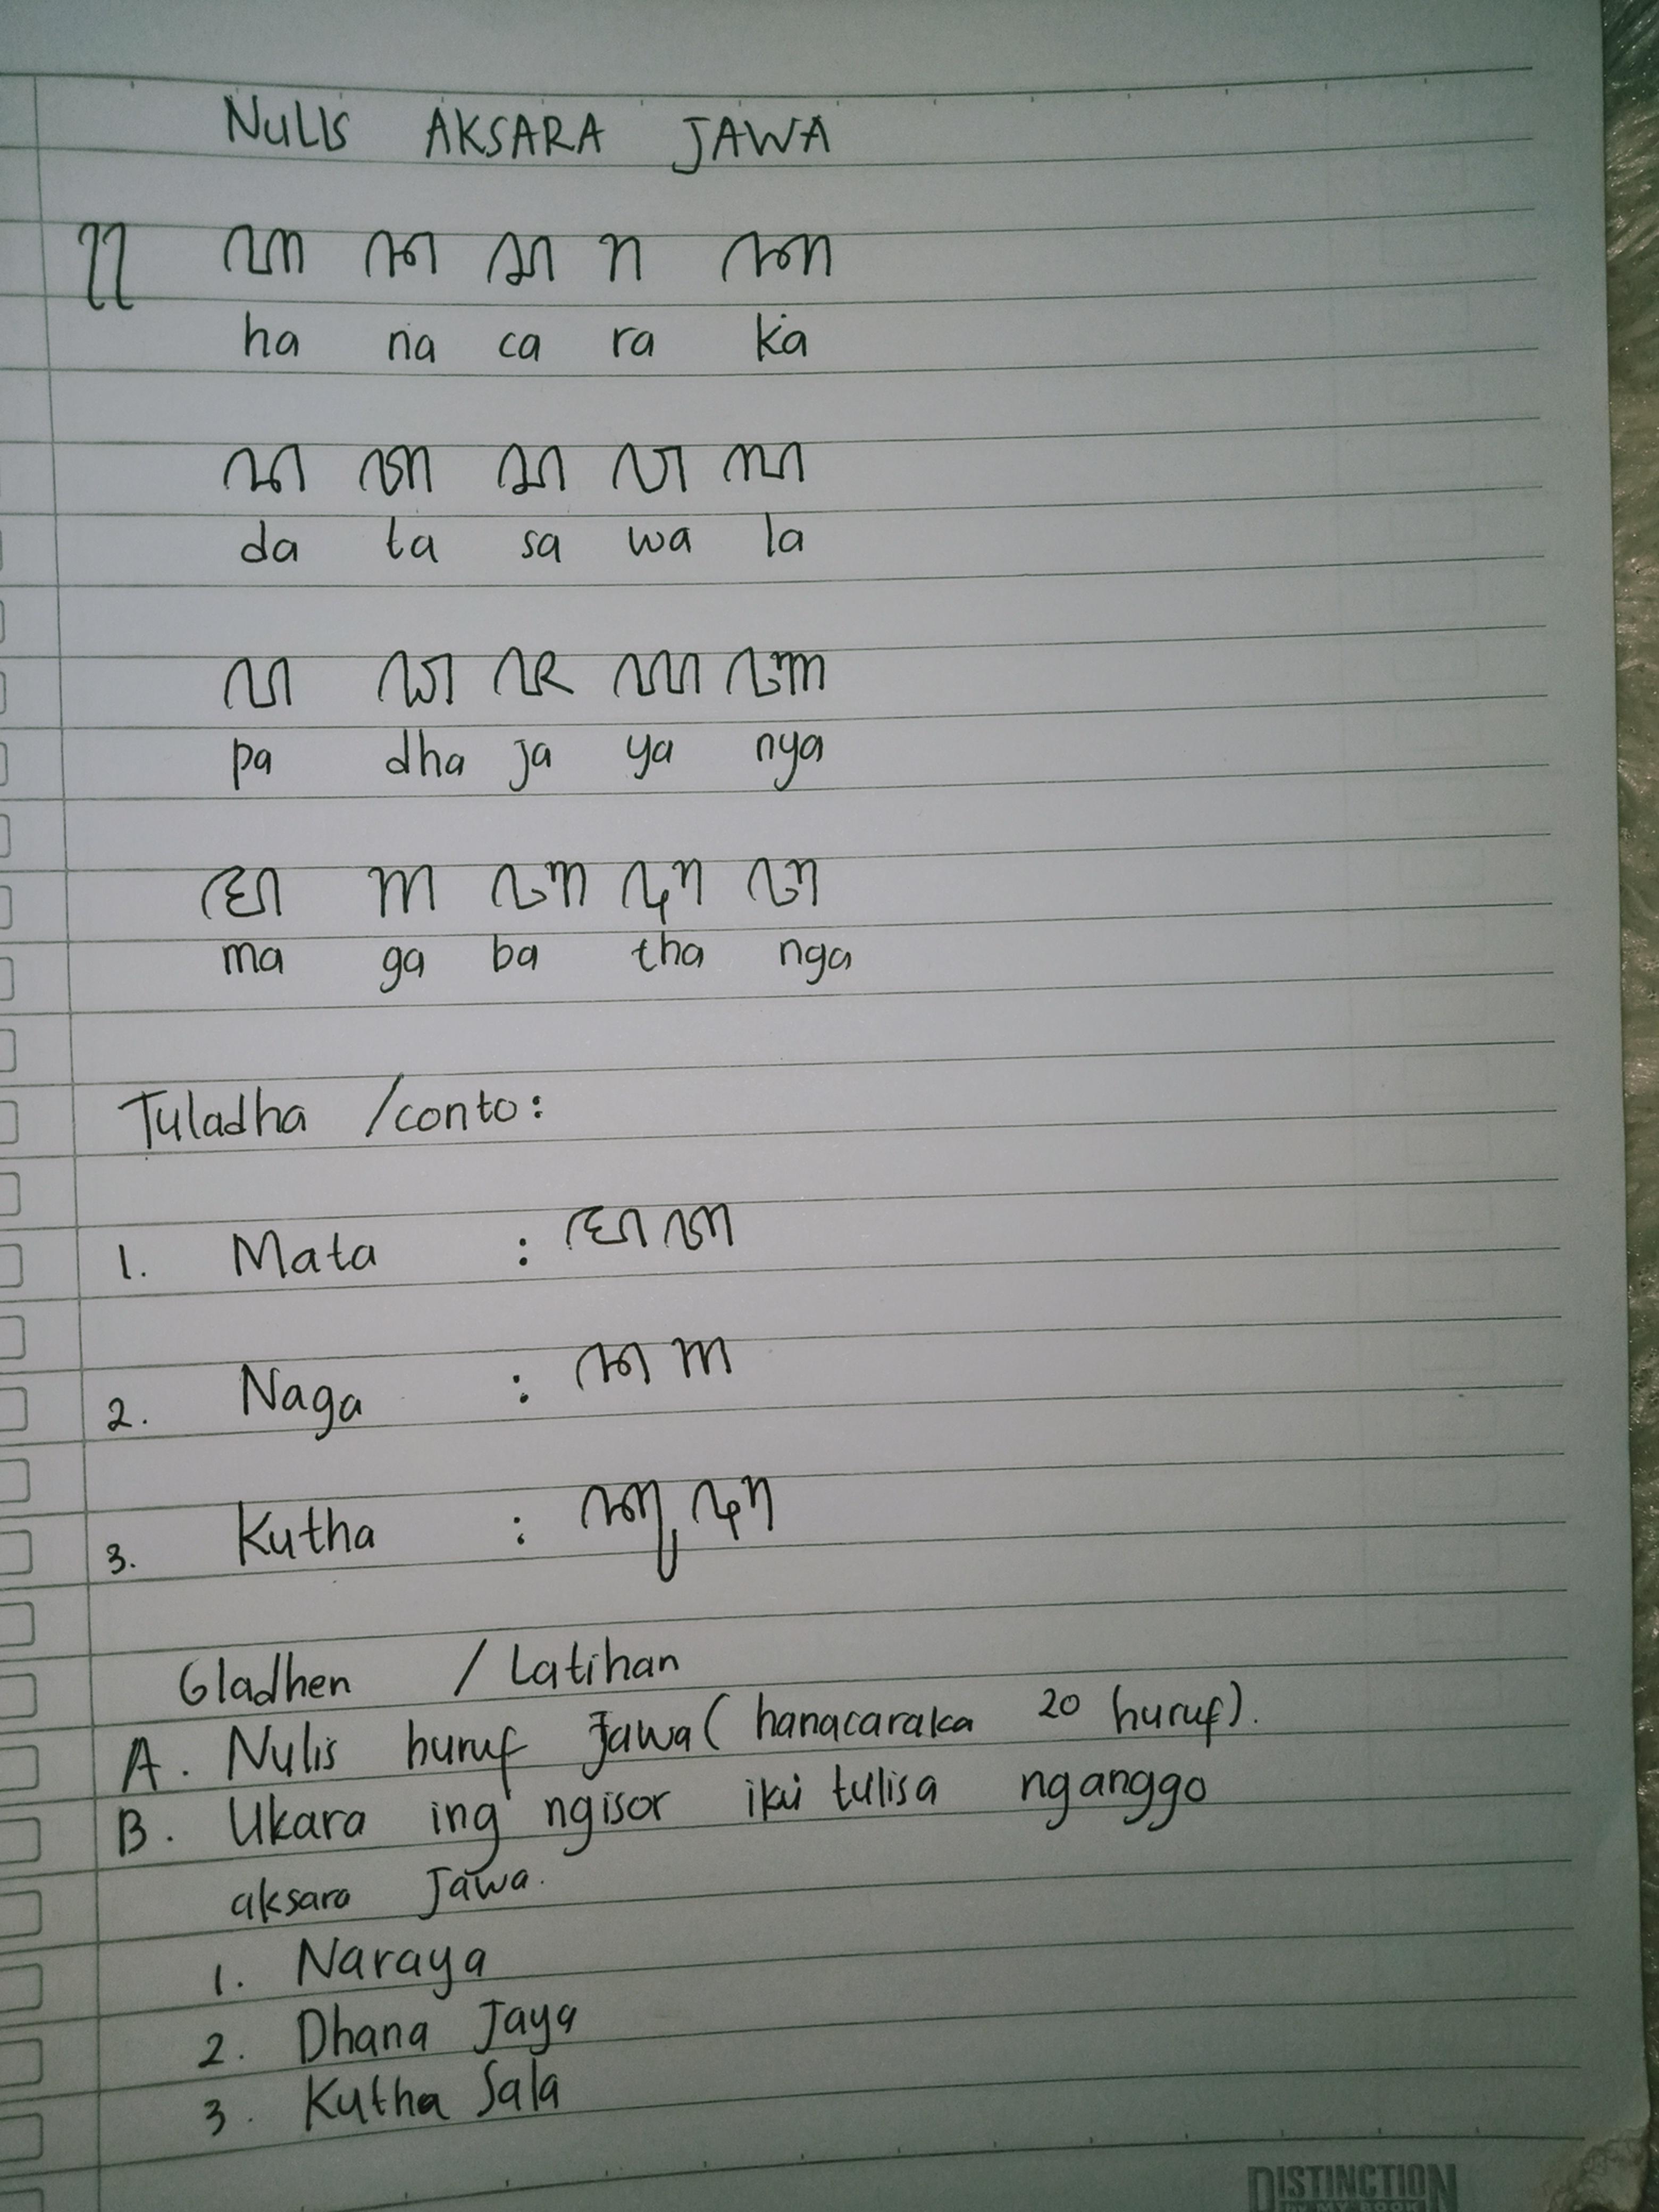 NULIS AKSARA JAWA
꧋ ꦲ ꦤ ꦕ ꦫ ꦏ
ha na ca ra ka
ꦢ ꦠ ꦱ ꦮ ꦭ
da ta sa wa la
ꦥ ꦝ ꦗ ꦪ ꦚ
pa dha ja ya nya
ꦩ ꦒ ꦧ ꦛ ꦔ
ma ga ba tha nga
Tuladha /conto:
1. Mata : ꦩꦠ
2. Naga : ꦤꦒ
3. Kutha : ꦏꦸꦛ
Gladhen / Latihan
A. Nulis huruf Jawa (hanacaraka 20 huruf).
B. Ukara ing ngisor iki tulisa nganggo
aksara Jawa.
1. Naraya
2. Dhana Jaya
3. Kutha Sala
DISTINCTION
by MY BOOK